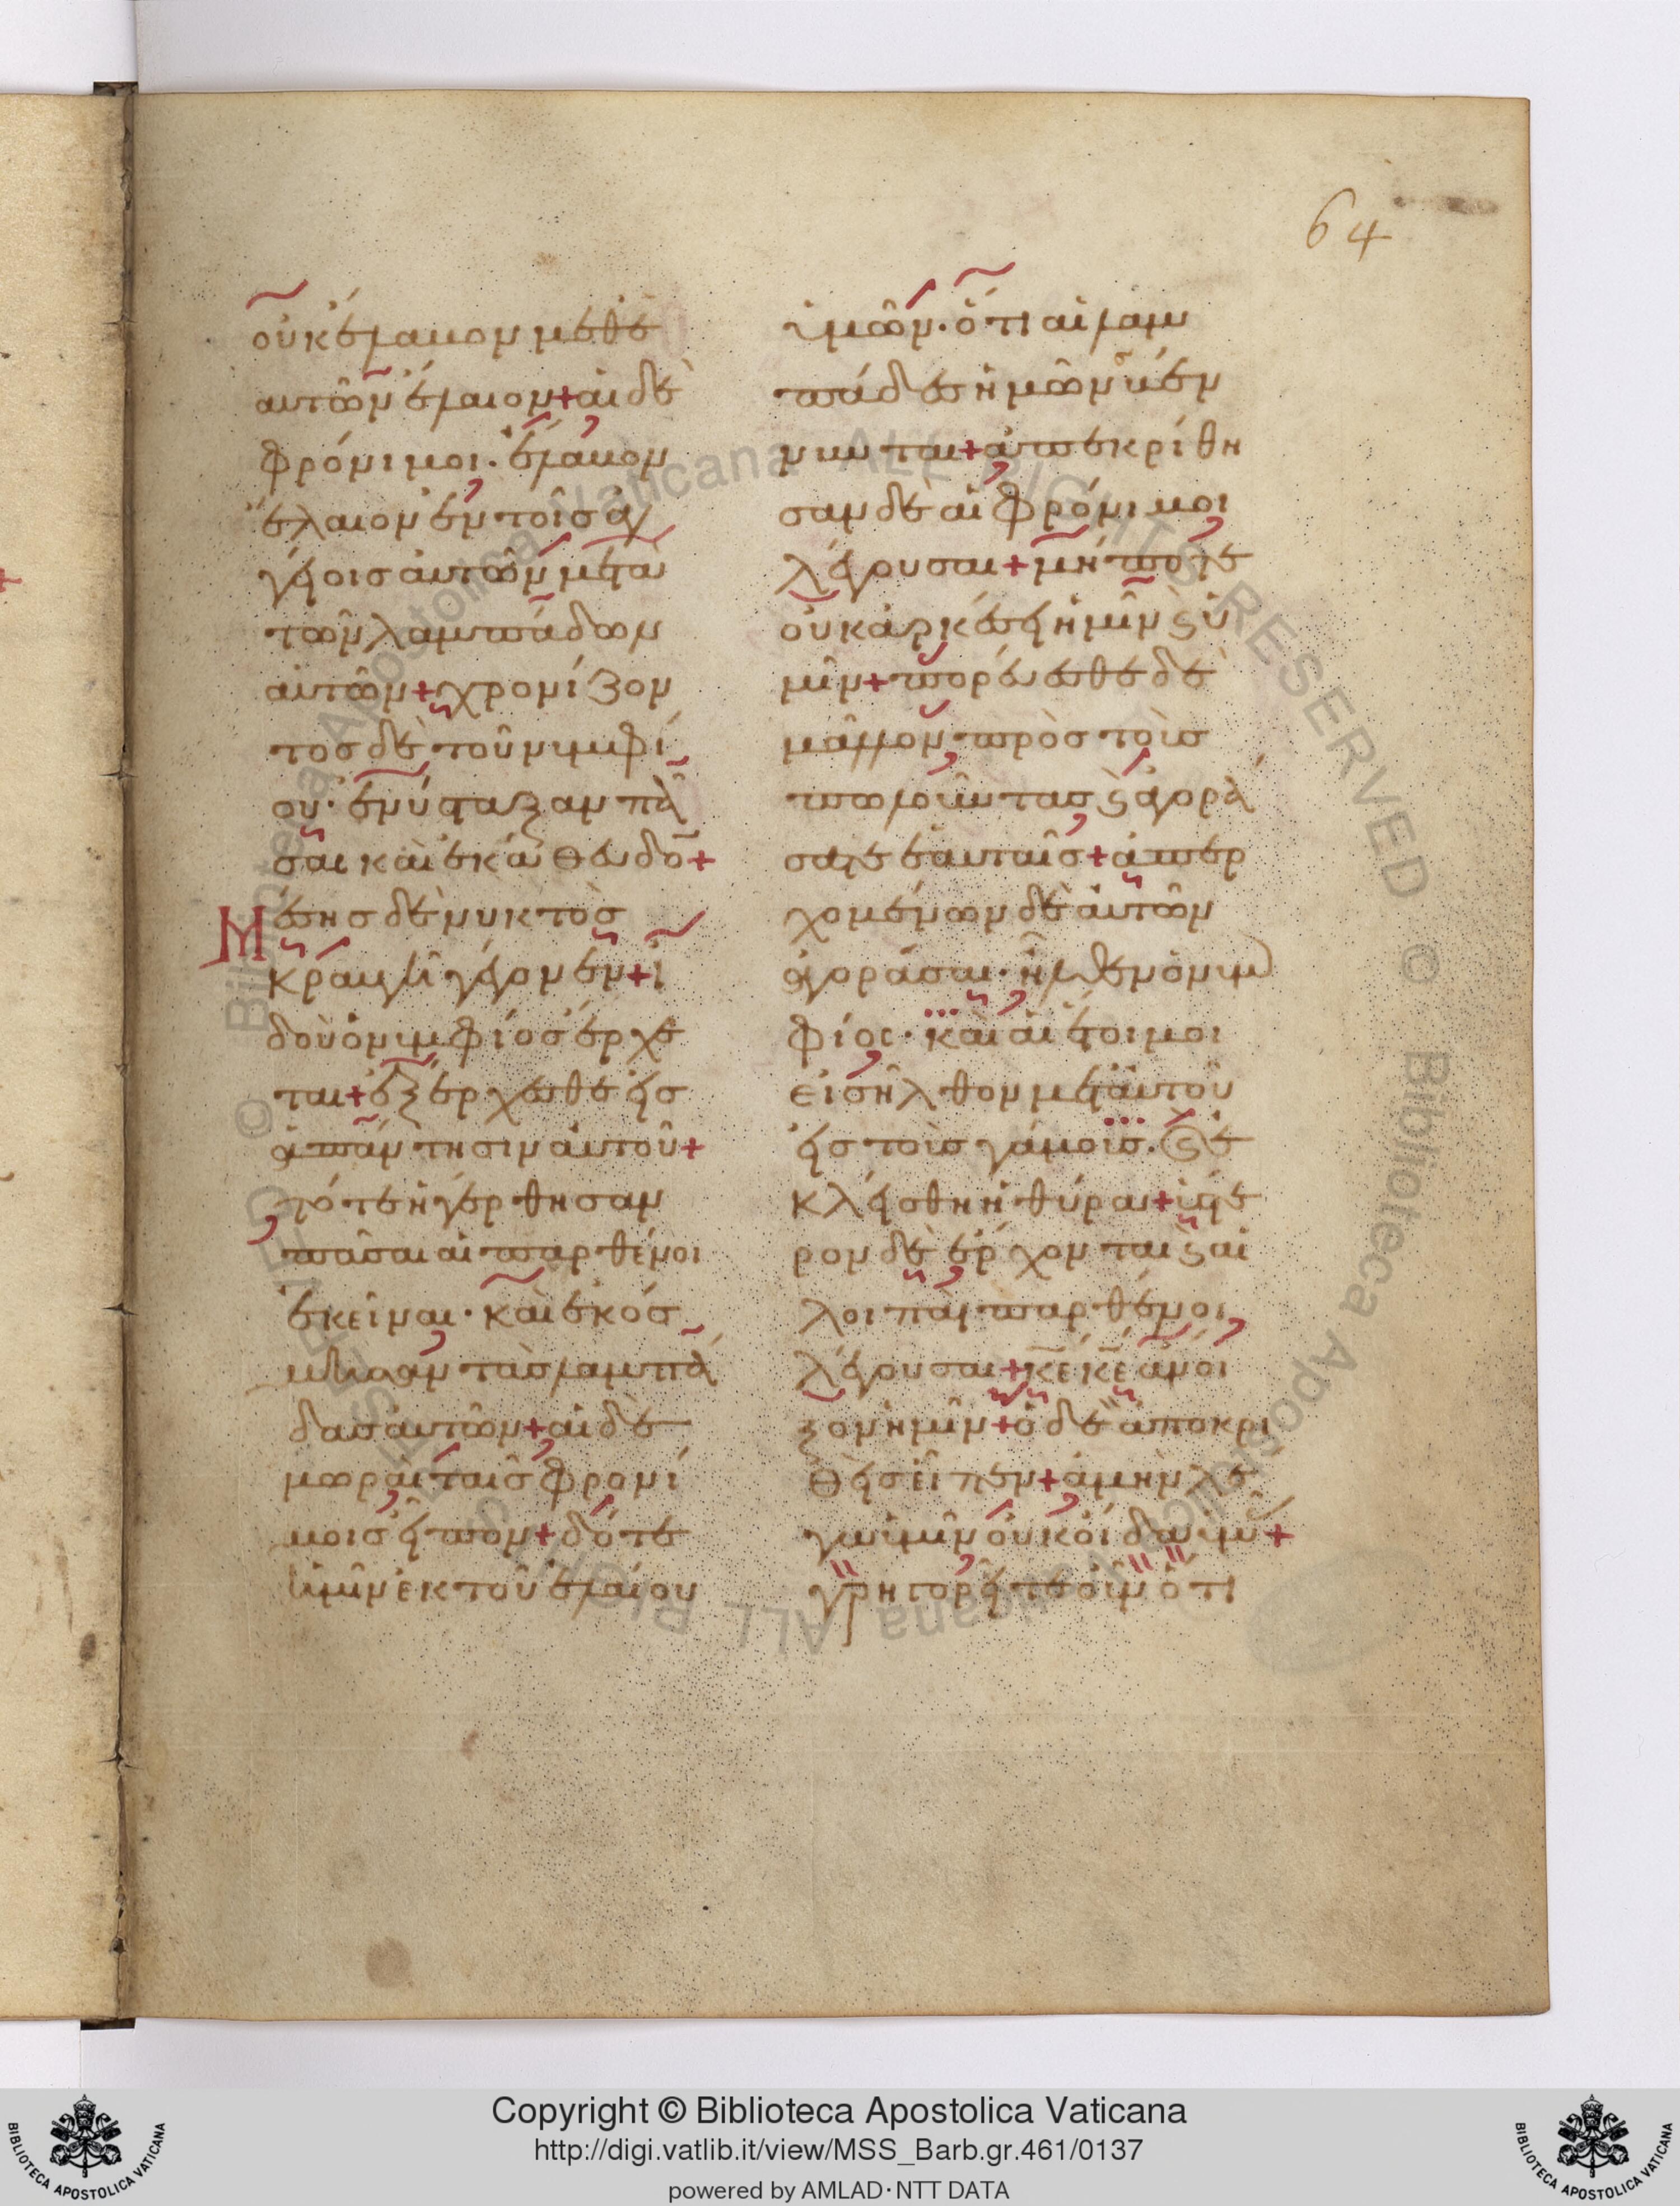 64
οὐκ ἔλαβον μεθ ε
αυτῶν ἔλαιον + αἱ δὲ
φρόνιμοι · ἔλαβον
ἔλαιον ἐν τοῖσ ἀγ
γείοισ αυτῶν μετὰ
τῶν λαμπάδων
αὐτῶν + χρονίζον
τοσ δὲ τοῦ νυμφί
ου · ἐνύσταξαν πᾶ
σαι καὶ ἐκάθευδο̄ +
Μέσησ δὲ νυκτὸσ
κραυγὴ γέγονεν + ἰ
δοὺ ὁ νυμφίοσ ἔρχε
ται + ἐξέρχεσθε εἰσ
ἀπάντησιν αὐτοῦ +
τότε ἠγέρθησαν
πᾶσαι αἱ παρθένοι
ἐκεῖναι · καὶ ἐκόσ
μησαν τὰσ λαμπά
δασ αὐτῶν + αἱ δὲ
μωραὶ ταῖσ φρονί
μοισ εἶπον + δότε
ἡμῖν ἐκ τοῦ ἐλαίου
ὑμῶν · ὅτι αἱ λαμ
πάδεσ ἡμῶν σβέν
νυνται + ἀπεκρίθη
σαν δὲ αἱ φρόνιμοι
λέγουσαι + μήποτε
οὐκ ἀρκέσει ἡμῖν ϗ ὑ
μῖν + πορεύεσθε δὲ
μᾶλλον πρὸσ τοὺσ
πωλοῦντασ ϗ ἀγορά
σατε ἑαυταῖσ + ἀπερ
χομένων δὲ αὐτῶν
ἀγοράσαι · ἦλθεν ὁ νυμ
φίος · καὶ αἱ ἕτοιμοι
εἰσῆλθον μετ αὐτοῦ
εἰσ τοὺσ γάμουσ · ϗ ἐ
κλείσθη ἡ θύρα + ὕστε
ρον δὲ ἔρχονται ϗ αἱ
λοιπαὶ παρθένοι
λέγουσαι + κ̅ε̅ κ̅ε̅ ἄνοι
ξον ἡμῖν + ὁ δὲ ἀποκρι
θεὶσ εἶπεν + ἀμὴν λέ
γω ὑμῖν οὐκ οἶδα ὑμᾶσ +
γρηγορεῖτε οὖν ὅτι
Copyright © Biblioteca Apostolica Vaticana
http://digi.vatlib.it/view/MSS_Barb.gr.461/0137
powered by AMLAD·NTT DATA
BIBLIOTECA APOSTOLICA VATICANA
BIBLIOTECA APOSTOLICA VATICANA
© Biblioteca Apostolica Vaticana ALL RIGHTS RESERVED © Biblioteca Apostolica Vaticana ALL RIGHTS RESERVED